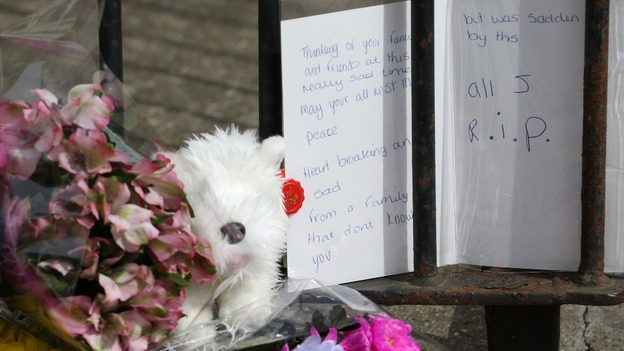 Thinking of your family
and friends at this
really sad time
may your all rest in
peace
Heart breaking an
sad
from a family
that dont know
you
but was sadden
by ths
all 5
R.i.p.